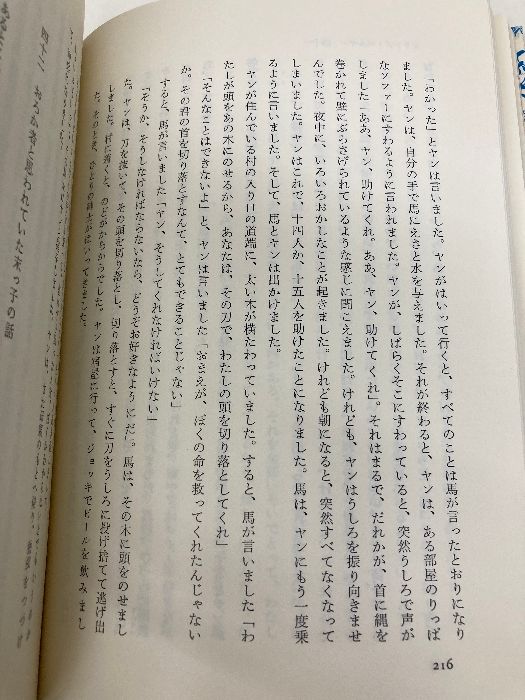 「わかった」とヤンは言いました。ヤンがはいって行くと、すべてのことは馬が言ったとおりになり
ました。ヤンは、自分の手で馬にえさと水を与えました。それが終わると、ヤンは、ある部屋のりっぱ
なソファーにすわるように言われました。ヤンが、しばらくそこにすわっていると、突然うしろで声が
しました「ああ、ヤン、助けてくれ。ああ、ヤン、助けてくれ」。それはまるで、だれかが、首に縄を
巻かれて壁にぶらさげられているような感じに聞こえました。けれども、ヤンはうしろを振り向きませ
んでした。夜中に、いろいろおかしなことが起きました。けれども朝になると、突然すべてなくなって
しまいました。ヤンはこれで、十四人か、十五人を助けたことになりました。馬は、ヤンにもう一度乗
るように言いました。そして、馬とヤンは出かけました。
ヤンが住んでいる村の入り口の道端に、太い木が横たわっていました。すると、馬が言いました「わ
たしが頭をあの木にのせるから、あなたは、その刀で、わたしの頭を切り落としてくれ」
「そんなことはできないよ」と、ヤンは言いました「おまえが、ぼくの命を救ってくれたんじゃない
か。その君の首を切り落とすなんて、とてもできることじゃない」
すると、馬が言いました「ヤン、そうしてくれなければいけない」
「そうか、そうしなければならないなら、どうぞお好きなようにだ」。馬は、その木に頭をのせまし
た。ヤンは、刀を抜いて、その頭を切り落とし、切り落とすと、すぐに刀をうしろに投げ捨てて逃げ出
しました。村に着くと、のどがからからでした。ヤンは酒屋に行って、ジョッキでビールを飲みまし
た。そのとき、ひとりの紳士がはいってきました。
216
四十二 おろか者と思われていた末っ子の話